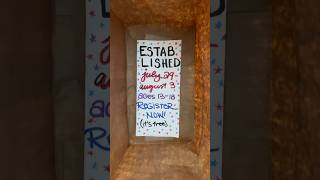 ESTAB
LISHED
july 29
august 3
ages 13-18
REGISTER
NOW!
(it's free)